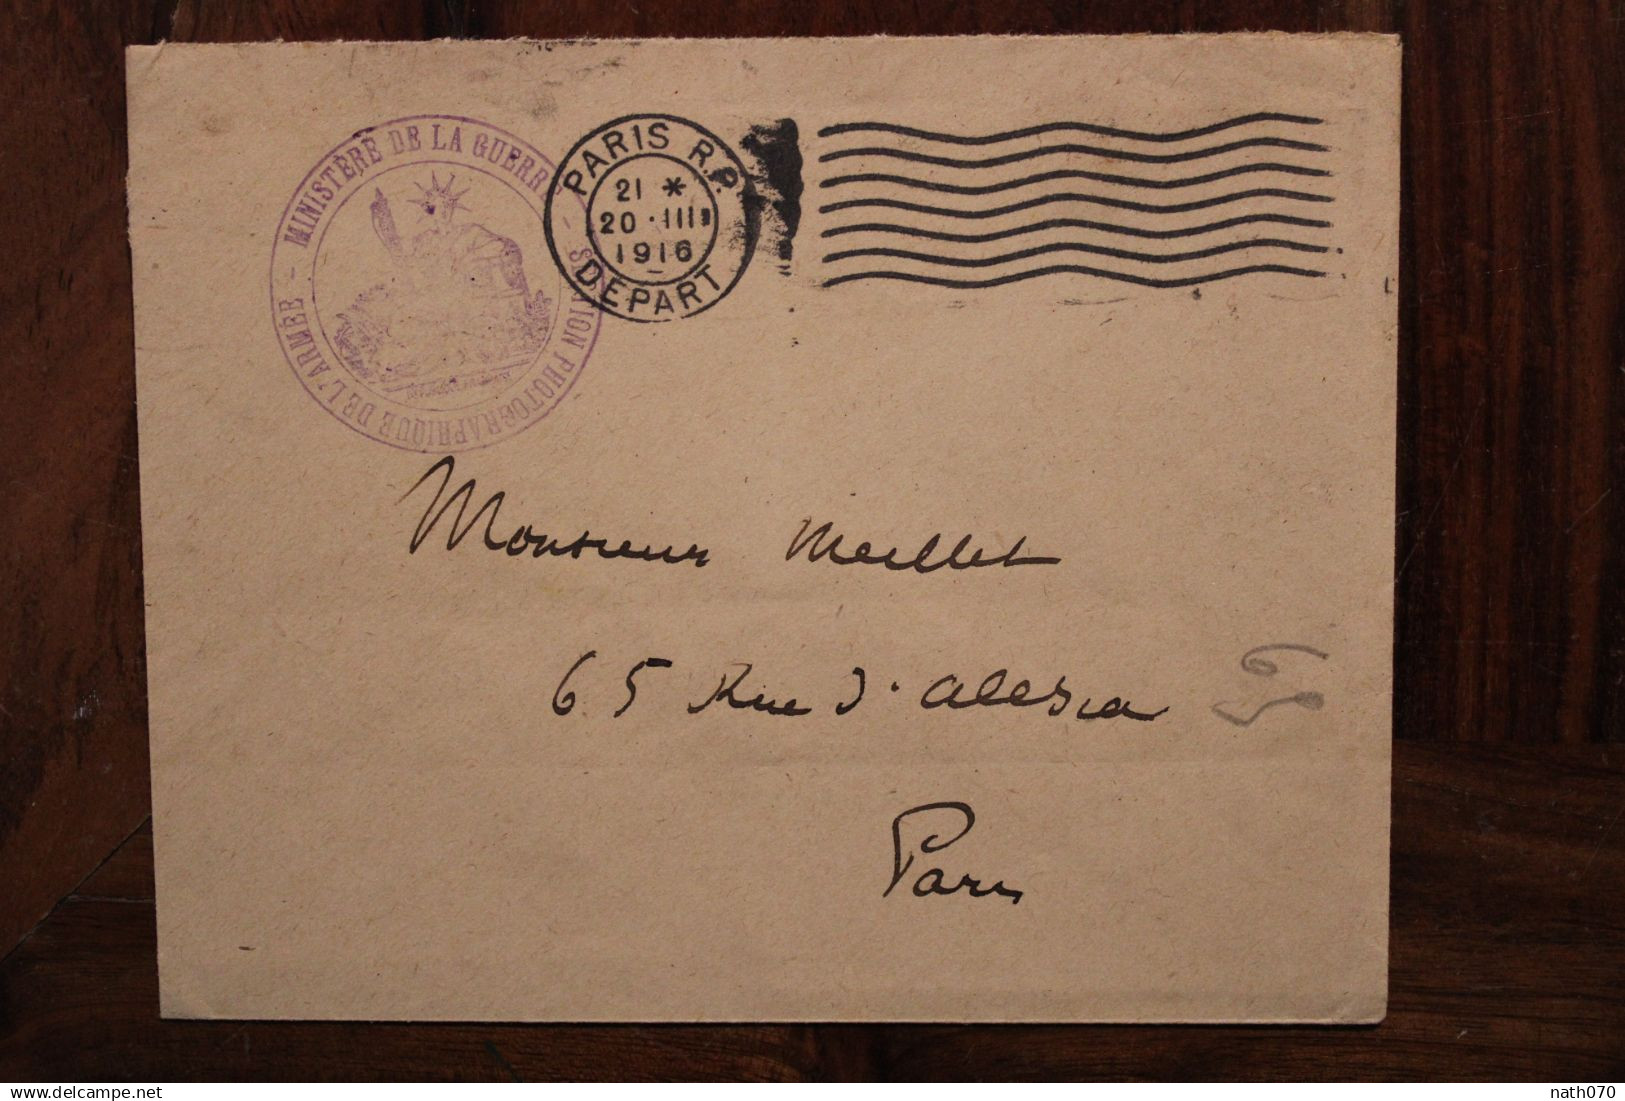 MINISTÈRE DE LA GUERRE - SECTION PHOTOGRAPHIQUE DE L'ARMÉE -
PARIS R.P.
21 *
20 · III
1916
DEPART
Monsieur Meillet
65 Rue d'Alesia
Paris
delcampe.net
nath070